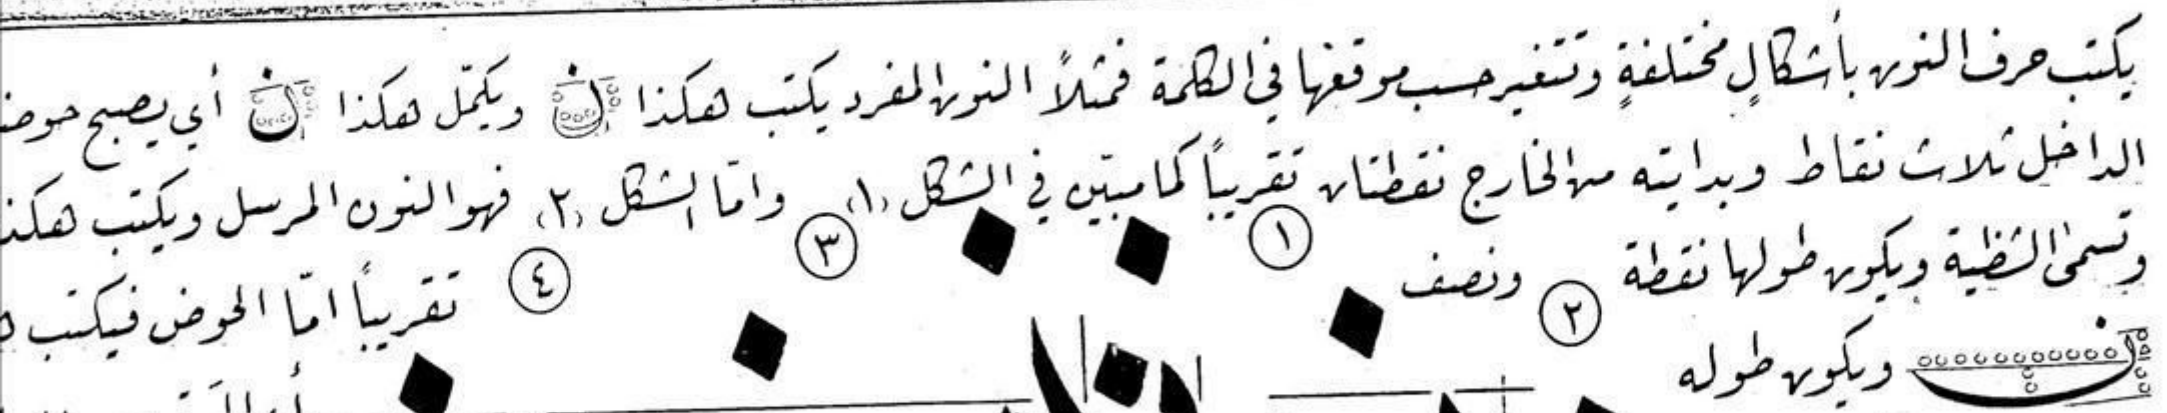 يكتب حرف النون بأشكالٍ مختلفةٍ وتتغير حسب موقعها في الكلمة فمثلاً النون المفرد يكتب هكذا ن ويكمّل هكذا ن أي يصبح
الداخل ثلاث نقاط وبدايته من الخارج نقطتان تقريباً كما مبيّن في الشكل (١) وامّا الشكل (٢) فهو النون المرسل ويكتب
وتسمى الشظية ويكون طولها نقطة ونصف تقريباً امّا الحوض فيكتب
ويكون طوله
١
٢
٣
٤